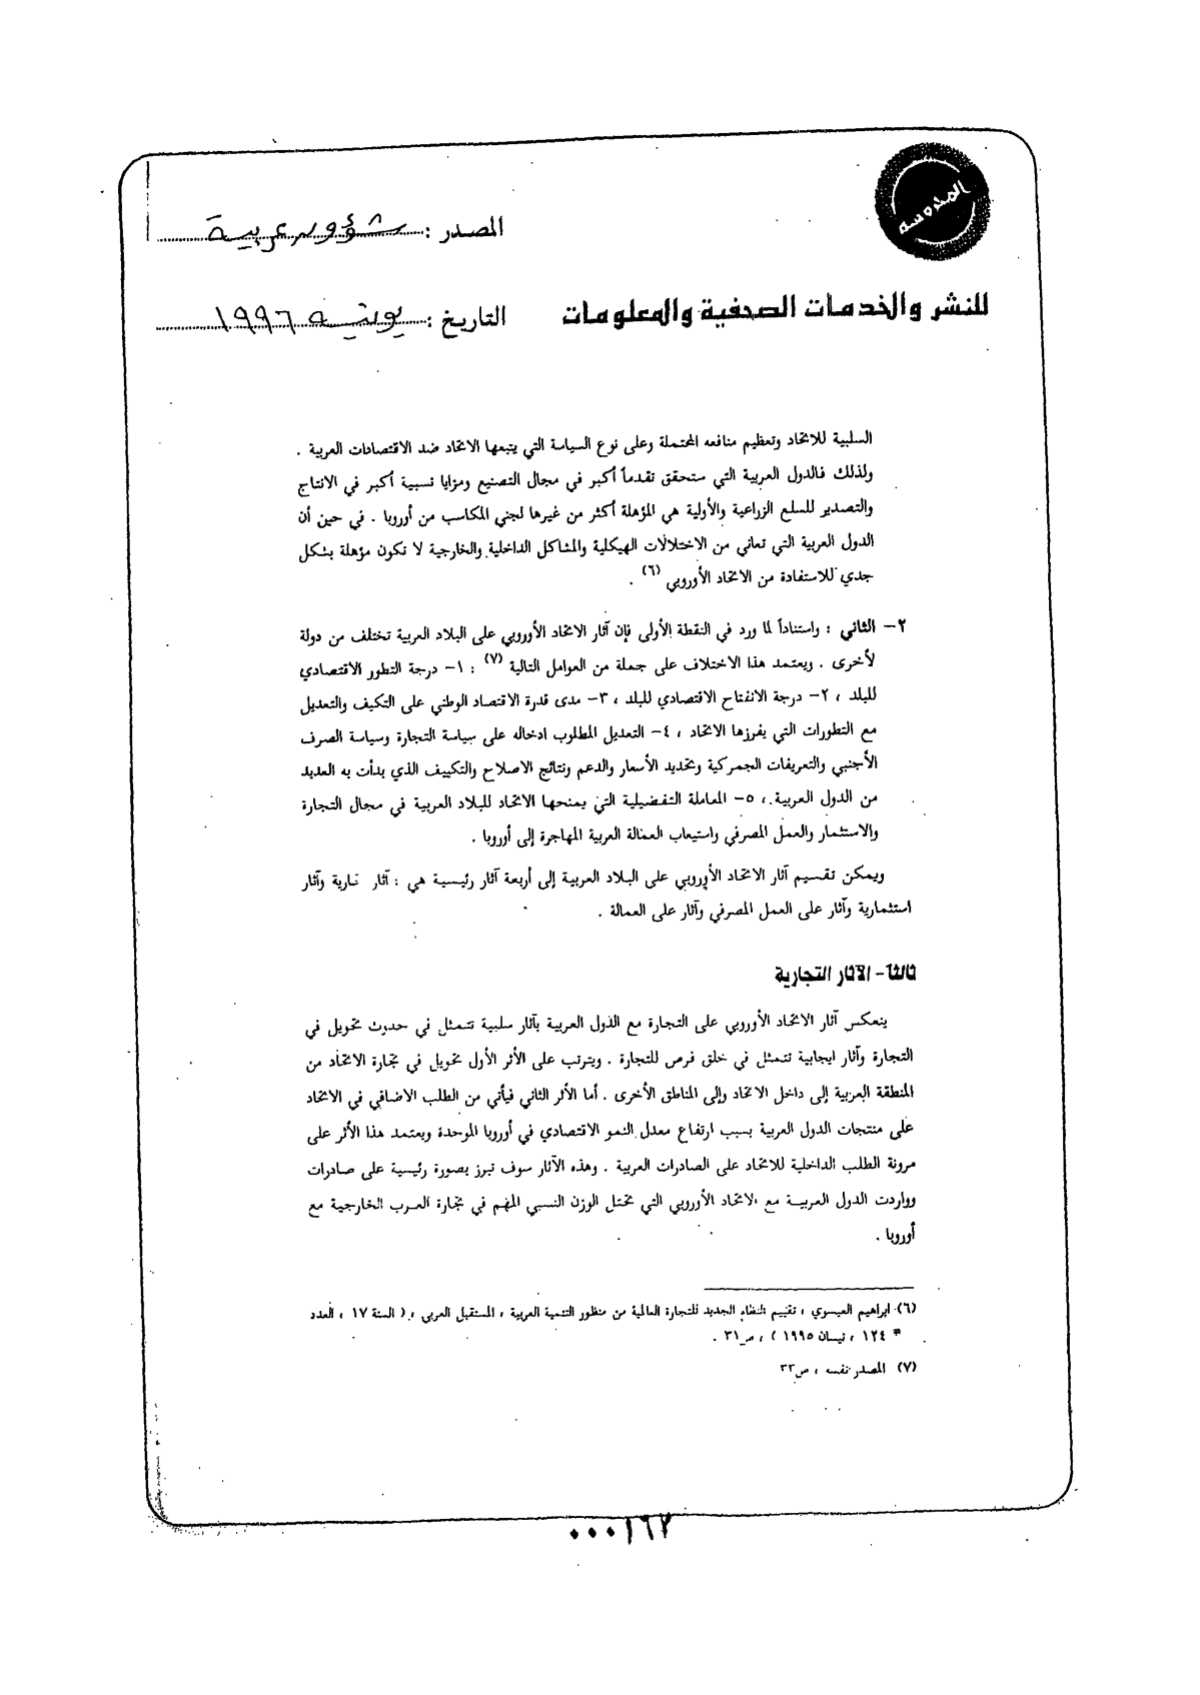 المدوسه
المصدر : شؤون عربية
للنشر والخدمات الصحفية والمعلومات
التاريخ : يونيه ١٩٩٦
السلبية للاتحاد وتعظيم منافعه المحتملة وعلى نوع السياسة التي يتبعها الاتحاد ضد الاقتصادات العربية .
ولذلك فالدول العربية التي ستحقق تقدماً أكبر في مجال التصنيع ومزايا نسبية أكبر في الانتاج
والتصدير للسلع الزراعية والأولية هي المؤهلة أكثر من غيرها لجني المكاسب من أوروبا . في حين أن
الدول العربية التي تعاني من الاختلالات الهيكلية والمشاكل الداخلية والخارجية لا تكون مؤهلة بشكل
جدي للاستفادة من الاتحاد الأوروبي (٦) .
٢- الثاني : واستناداً لما ورد في النقطة الأولى فإن آثار الاتحاد الأوروبي على البلاد العربية تختلف من دولة
لأخرى . ويعتمد هذا الاختلاف على جملة من العوامل التالية (٧) : ١- درجة التطور الاقتصادي
للبلد ، ٢- درجة الانفتاح الاقتصادي للبلد ، ٣- مدى قدرة الاقتصاد الوطني على التكيف والتعديل
مع التطورات التي يفرزها الاتحاد ، ٤- التعديل المطلوب ادخاله على سياسة التجارة وسياسة الصرف
الأجنبي والتعريفات الجمركية وتحديد الأسعار والدعم ونتائج الاصلاح والتكييف الذي بدأت به العديد
من الدول العربية ، ٥- المعاملة التفضيلية التي يمنحها الاتحاد للبلاد العربية في مجال التجارة
والاستثمار والعمل المصرفي واستيعاب العمالة العربية المهاجرة إلى أوروبا .
ويمكن تقسيم آثار الاتحاد الأوروبي على البلاد العربية إلى أربعة آثار رئيسية هي : آثار تجارية وآثار
استثمارية وآثار على العمل المصرفي وآثار على العمالة .
ثالثا- الآثار التجارية
ينعكس آثار الاتحاد الأوروبي على التجارة مع الدول العربية بآثار سلبية تتمثل في حدوث تحويل في
التجارة وآثار ايجابية تتمثل في خلق فرص للتجارة . ويترتب على الأثر الأول تحويل في تجارة الاتحاد من
المنطقة العربية إلى داخل الاتحاد وإلى المناطق الأخرى . أما الأثر الثاني فيأتي من الطلب الاضافي في الاتحاد
على منتجات الدول العربية بسبب ارتفاع معدل النمو الاقتصادي في أوروبا الموحدة ويعتمد هذا الأثر على
مرونة الطلب الداخلية للاتحاد على الصادرات العربية . وهذه الآثار سوف تبرز بصورة رئيسية على صادرات
وواردت الدول العربية مع الاتحاد الأوروبي التي تحتل الوزن النسبي المهم في تجارة العرب الخارجية مع
أوروبا .
(٦) ابراهيم العيسوي ، تقييم النظام الجديد للتجارة العالمية من منظور التنمية العربية ، المستقبل العربي ، ( السنة ١٧ ، العدد
# ١٢٤ ، نيسان ١٩٩٥ ) ، ص٣١ .
(٧) المصدر نفسه ، ص٣٣
٠٠٠١٦٢